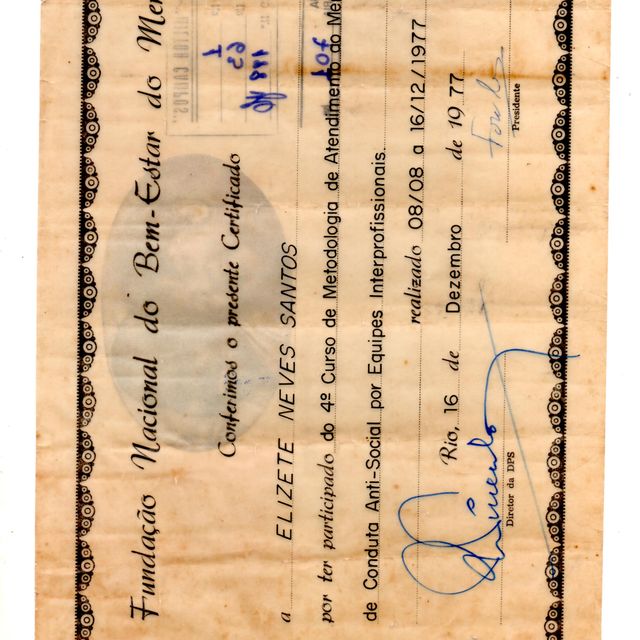 Fundação Nacional do Bem-Estar do Men
Conferimos o presente Certificado
a ELIZETE NEVES SANTOS
por ter participado do 4º Curso de Metodologia de Atendimento do Me
de Conduta Anti-Social por Equipes Interprofissionais.
realizado 08/08 a 16/12/1977
Rio, 16 de Dezembro de 19 77
Diretor da DPS
Presidente